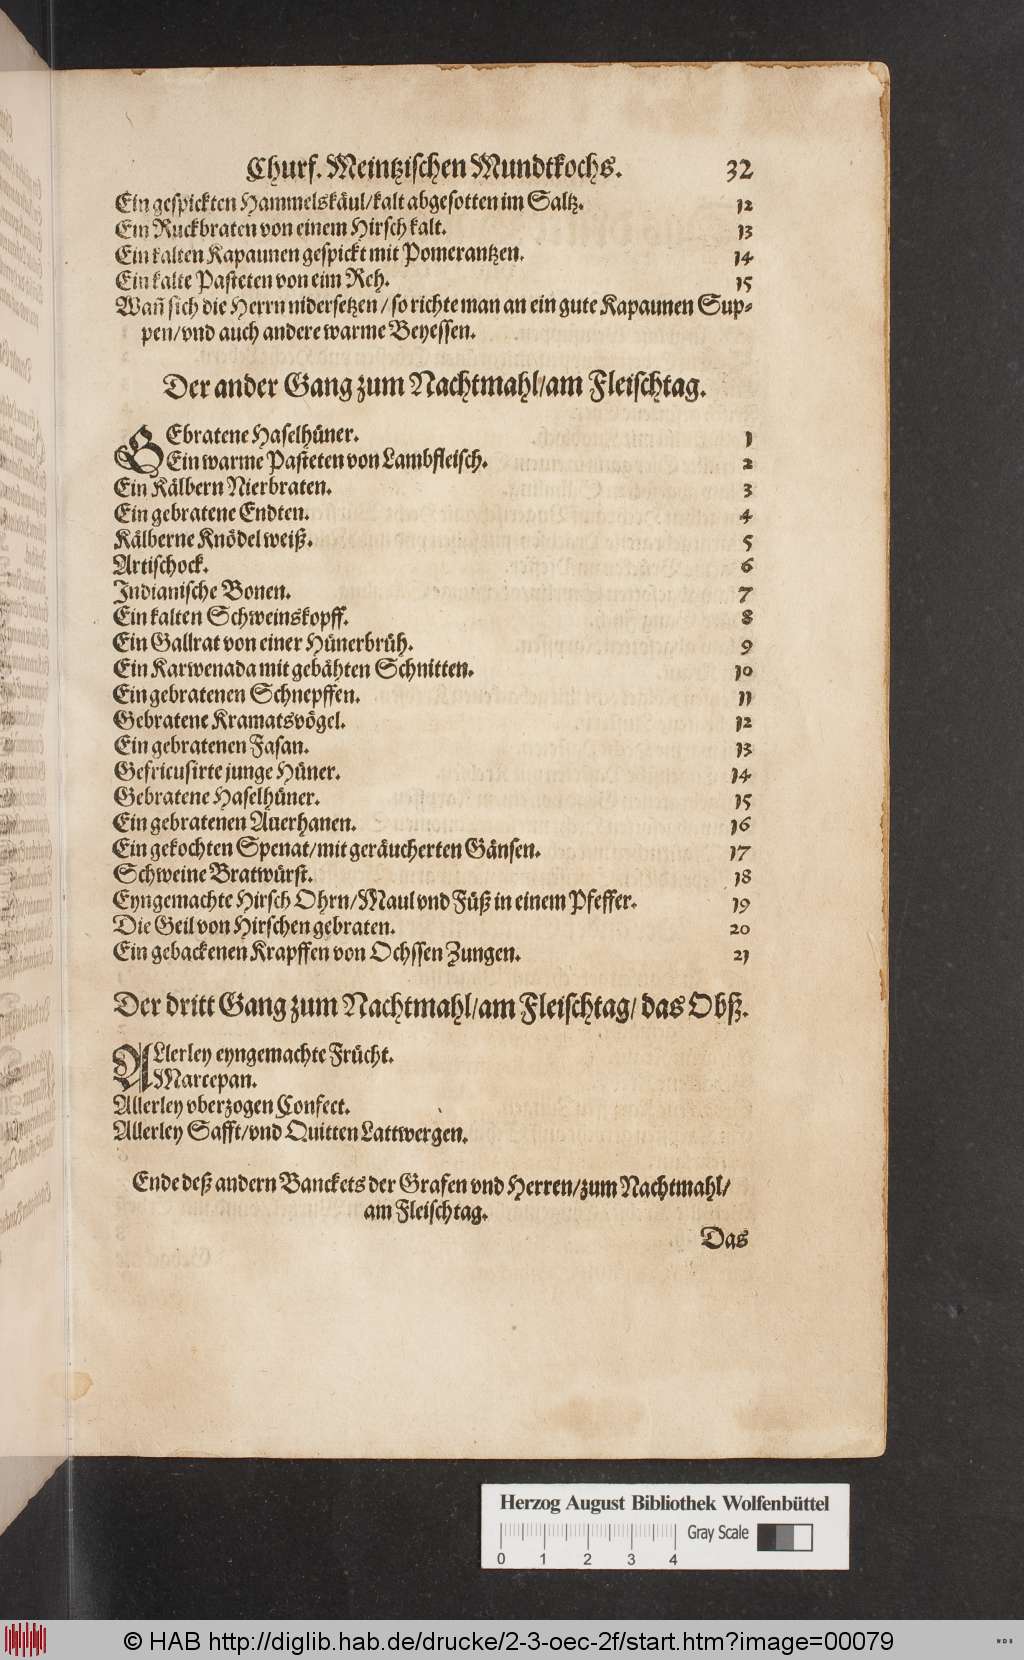 Churf. Meintzischen Mundtkochs. 32
Ein gespickten Hammelskäul/kalt abgesotten im Saltz. 12
Ein Ruckbraten von einem Hirsch kalt. 13
Ein kalten Kapaunen gespickt mit Pomerantzen. 14
Ein kalte Pasteten von eim Reh. 15
Wañ sich die Herrn nidersetzen / so richte man an ein gute Kapaunen Sup-
pen/vnd auch andere warme Beyessen.
Der ander Gang zum Nachtmahl/am Fleischtag.
GEbratene Haselhüner. 1
Ein warme Pasteten von Lambfleisch. 2
Ein Kälbern Nierbraten. 3
Ein gebratene Endten. 4
Kälberne Knödel weiß. 5
Artischock. 6
Indianische Bonen. 7
Ein kalten Schweinskopff. 8
Ein Gallrat von einer Hünerbrüh. 9
Ein Karwenada mit gebähten Schnitten. 10
Ein gebratenen Schnepffen. 11
Gebratene Kramatsvögel. 12
Ein gebratenen Fasan. 13
Gefricusirte junge Hüner. 14
Gebratene Haselhüner. 15
Ein gebratenen Auerhanen. 16
Ein gekochten Spenat/mit geräucherten Gänsen. 17
Schweine Bratwürst. 18
Eyngemachte Hirsch Ohrn/Maul vnd Füß in einem Pfeffer. 19
Die Geil von Hirschen gebraten. 20
Ein gebackenen Krapffen von Ochssen Zungen. 21
Der dritt Gang zum Nachtmahl/am Fleischtag/das Obß.
ALlerley eyngemachte Frücht.
Marcepan.
Allerley vberzogen Confect.
Allerley Safft/vnd Quitten Lattwergen.
Ende deß andern Banckets der Grafen vnd Herren/zum Nachtmahl/
am Fleischtag.
Das
Herzog August Bibliothek Wolfenbüttel
Gray Scale
0 1 2 3 4
© HAB http://diglib.hab.de/drucke/2-3-oec-2f/start.htm?image=00079